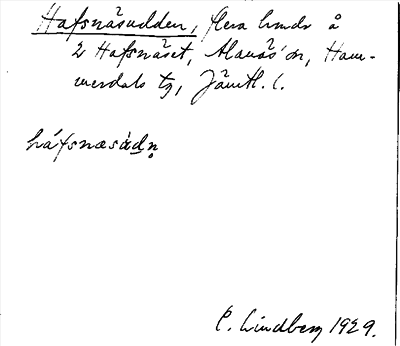 Hafsnäsudden, flera hmdr å
2 Hafsnäset, Alanäs sn, Ham-
merdals tg, Jämtl. l.
háfsnæsùdn̥
C. Lindberg 1929.